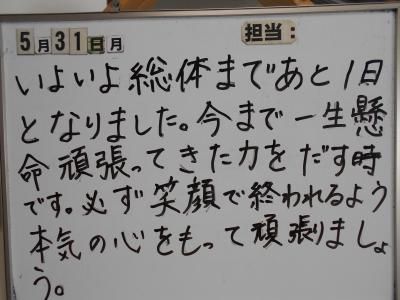 5月31日月
担当:
いよいよ総体まであと1日
となりました。今まで一生懸
命頑張ってきた力をだす時
です。必ず笑顔で終われるよう
本気の心をもって頑張りましょ
う。